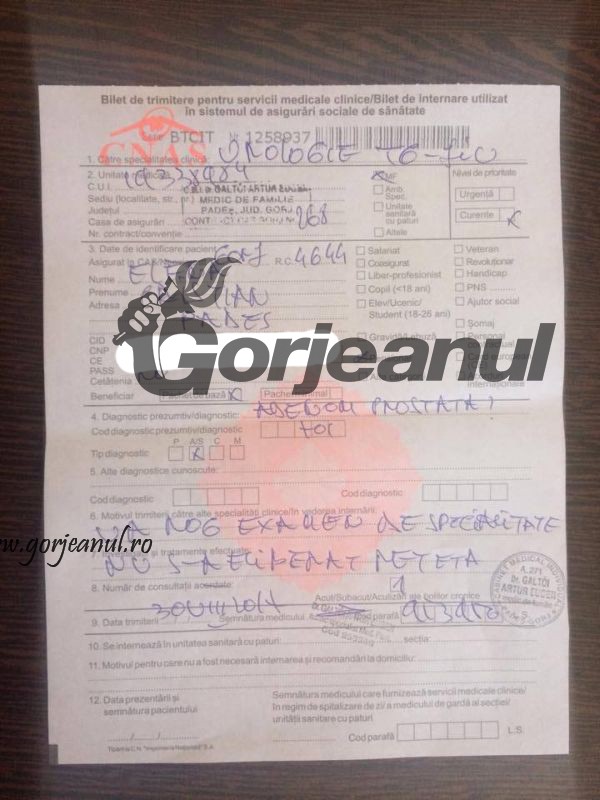 Bilet de trimitere pentru servicii medicale clinice/Bilet de internare utilizat
în sistemul de asigurări sociale de sănătate
CNAS
Serie BTCIT № 1258937
1. Către specialitatea clinică: UROLOGIE
2. Unitate medicală
C.U.I. 19338984
Sediu (localitate, str., nr.)
Județul
Casa de asigurări
Nr. contract/convenție
C.M.I. Dr. GALTOI ARTUR EUGEN
MEDIC DE FAMILIE
PADEȘ, JUD. GORJ
268
MF
Amb. Spec.
Unitate sanitară cu paturi
Altele
Nivel de prioritate
Urgență
Curente
3. Date de identificare pacient
Asigurat la CAS GORJ R.C. 4644
Nume
Prenume
Adresa PADES
CID
CNP
CE
PASS
Cetățenia
Salariat
Coasigurat
Liber-profesionist
Copil (<18 ani)
Elev/Ucenic/
Student (18-26 ani)
Gravidă/lehuză
Veteran
Revoluționar
Handicap
PNS
Ajutor social
Șomaj
Personal
Card european
Gorjeanul
Beneficiar Pachet de bază Pachet minimal
4. Diagnostic prezumtiv/diagnostic: ADENOM PROSTATA
Cod diagnostic prezumtiv/diagnostic: 701
P A/S C M
Tip diagnostic
5. Alte diagnostice cunoscute:
Cod diagnostic: Cod diagnostic:
6. Motivul trimiterii către alte specialități clinice/În vederea internării:
VA ROG EXAMEN DE SPECIALITATE
www.gorjeanul.ro
și tratamente efectuate:
NU S-A ELIBERAT RETETA
8. Număr de consultații acordate: 1
Acut/Subacut/Acutizări ale bolilor cronice
9. Data trimiterii Semnătura medicului Cod parafă
CABINET MEDICAL INDIVIDUAL
A. 271
Dr. GALTOI
ARTUR EUGEN
medic de familie
10. Se internează în unitatea sanitară cu paturi: secția:
11. Motivul pentru care nu a fost necesară internarea și recomandări la domiciliu:
12. Data prezentării și
semnătura pacientului
Semnătura medicului care furnizează servicii medicale clinice/
în regim de spitalizare de zi/ a medicului de gardă al secției/
unității sanitare cu paturi
Cod parafă L.S.
Tipărit la C.N. "Imprimeria Națională" S.A.